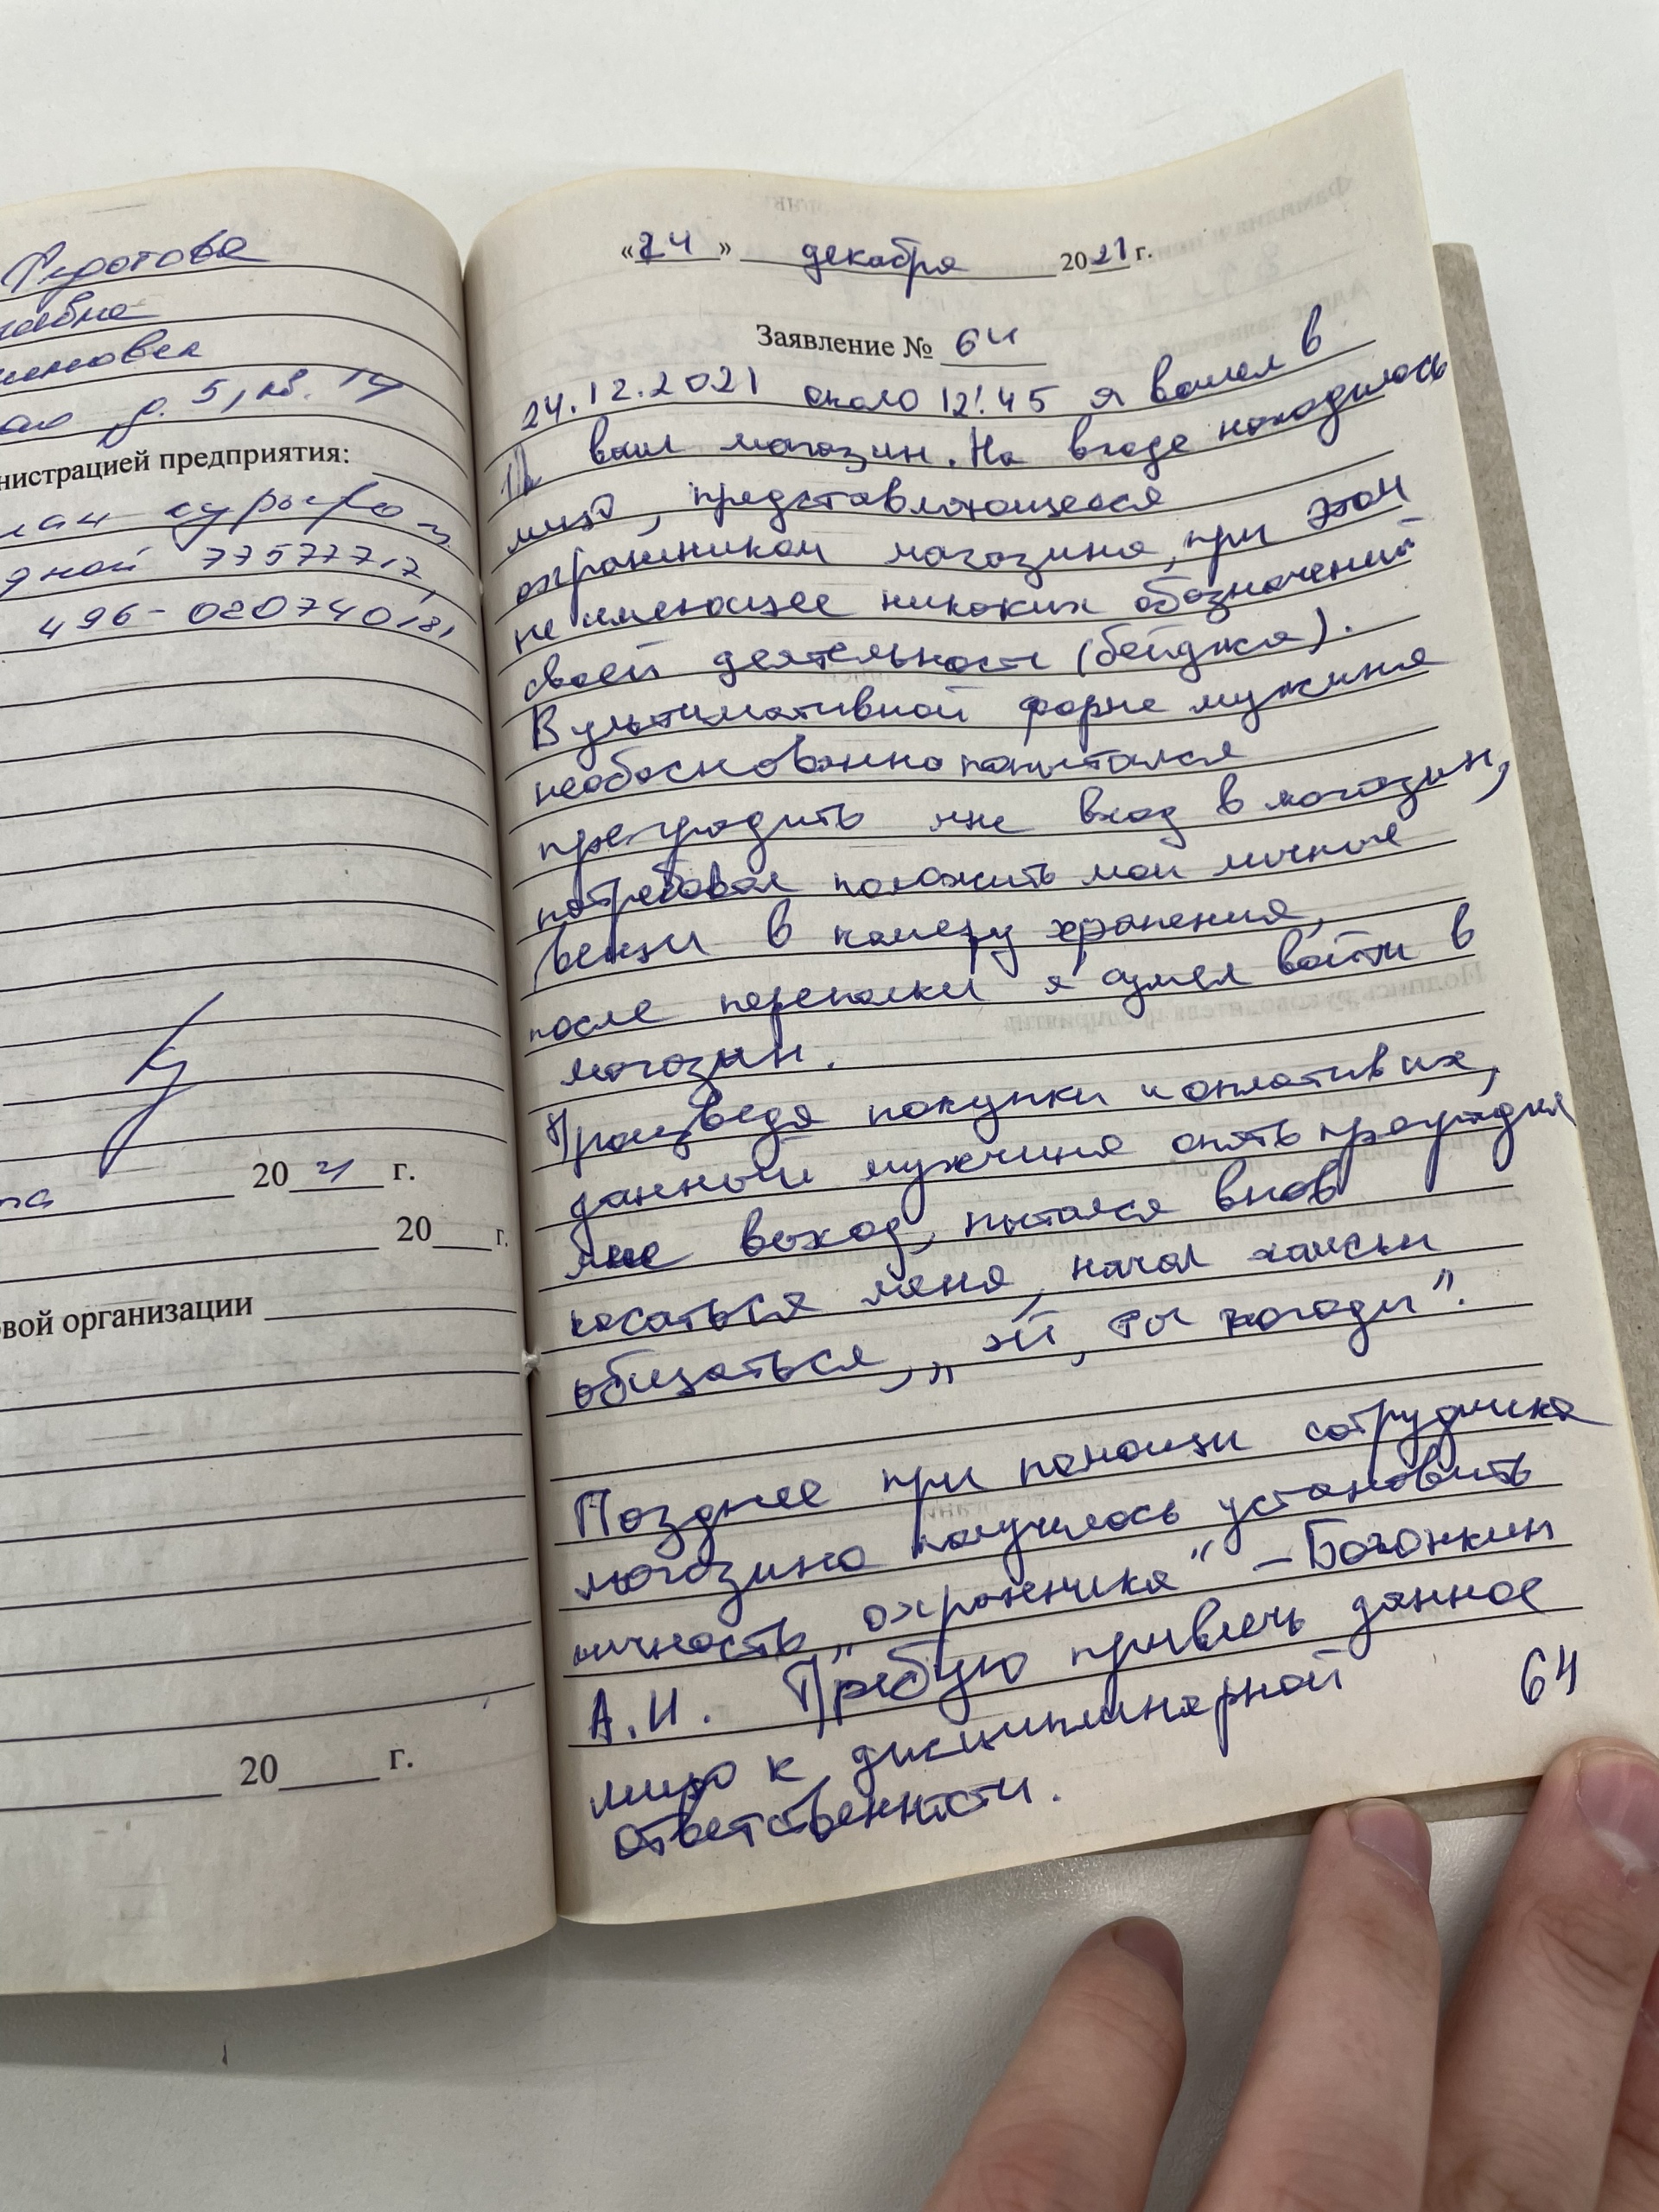 Федотова
д. 5, кв. 14
нистрацией предприятия:
дной 77577717,
496-020740181
20 21 г.
20 г.
вой организации
20 г.
«24» декабря 2021 г.
Заявление № 64
24.12.2021 около 12:45 я вошел в
ваш магазин. На входе находилось
лицо, представляющееся
охранником магазина, при этом
не имеющее никаких обозначений
своей деятельности (бейджа).
В ультимативной форме мужчина
необоснованно попытался
преградить мне вход в магазин,
потребовал положить мои личные
вещи в камеру хранения,
после перепалки я сумел войти в
магазин.
Произведя покупки и оплатив их,
данный мужчина опять преградил
мне выход, пытался вновь
касаться меня, начал хамски
общаться, „эй, ты погоди".
Позднее при помощи сотрудника
магазина получилось установить
личность „охранника" – Богонкин
А.И. Требую привлечь данное
лицо к дисциплинарной
ответственности.
64